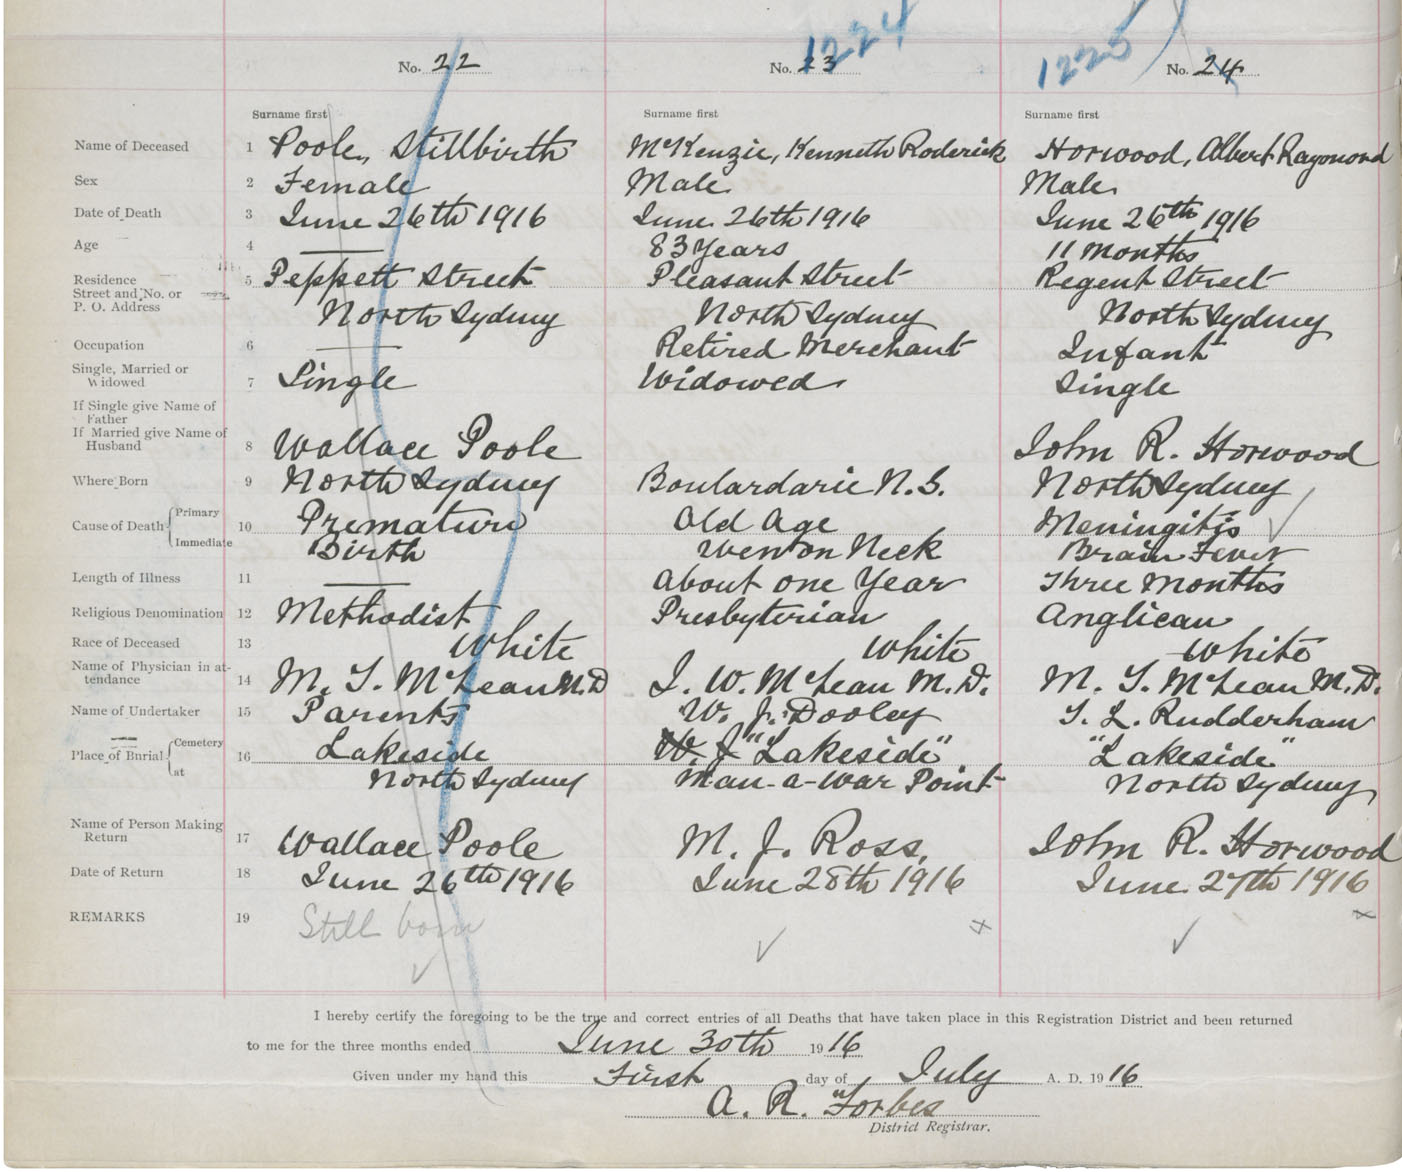 1224
1225
No. 22 No. 23 No. 24
Surname first Surname first Surname first
Name of Deceased 1 Poole, Stillbirth McKenzie, Kenneth Roderick Horwood, Albert Raymond
Sex 2 Female Male Male
Date of Death 3 June 26th 1916 June 26th 1916 June 26th 1916
Age 4 83 Years 11 Months
Residence 5 Peppett Street Pleasant Street Regent Street
Street and No. or
P. O. Address North Sydney North Sydney North Sydney
Occupation 6 Retired Merchant Infant
Single, Married or
Widowed 7 Single Widowed Single
If Single give Name of
Father
If Married give Name of
Husband 8 Wallace Poole John R. Horwood
Where Born 9 North Sydney Boulardarie N.S. North Sydney
Cause of Death Primary 10 Premature Old Age Meningitis
Immediate Birth Wen on Neck Brain Fever
Length of Illness 11 About one Year Three Months
Religious Denomination 12 Methodist Presbyterian Anglican
Race of Deceased 13 White White White
Name of Physician in at-
tendance 14 M. T. McLean M.D J. W. McLean M.D. M. T. McLean M.D.
Name of Undertaker 15 Parents W. J. Dooley T. L. Rudderham
Place of Burial Cemetery 16 Lakeside W. J "Lakeside" "Lakeside"
at North Sydney Man-a-War Point North Sydney
Name of Person Making
Return 17 Wallace Poole M. J. Ross, John R. Horwood
Date of Return 18 June 26th 1916 June 28th 1916 June 27th 1916
REMARKS 19 Still born
I hereby certify the foregoing to be the true and correct entries of all Deaths that have taken place in this Registration District and been returned
to me for the three months ended June 30th 1916
Given under my hand this First day of July A. D. 1916
A. R. Forbes
District Registrar.